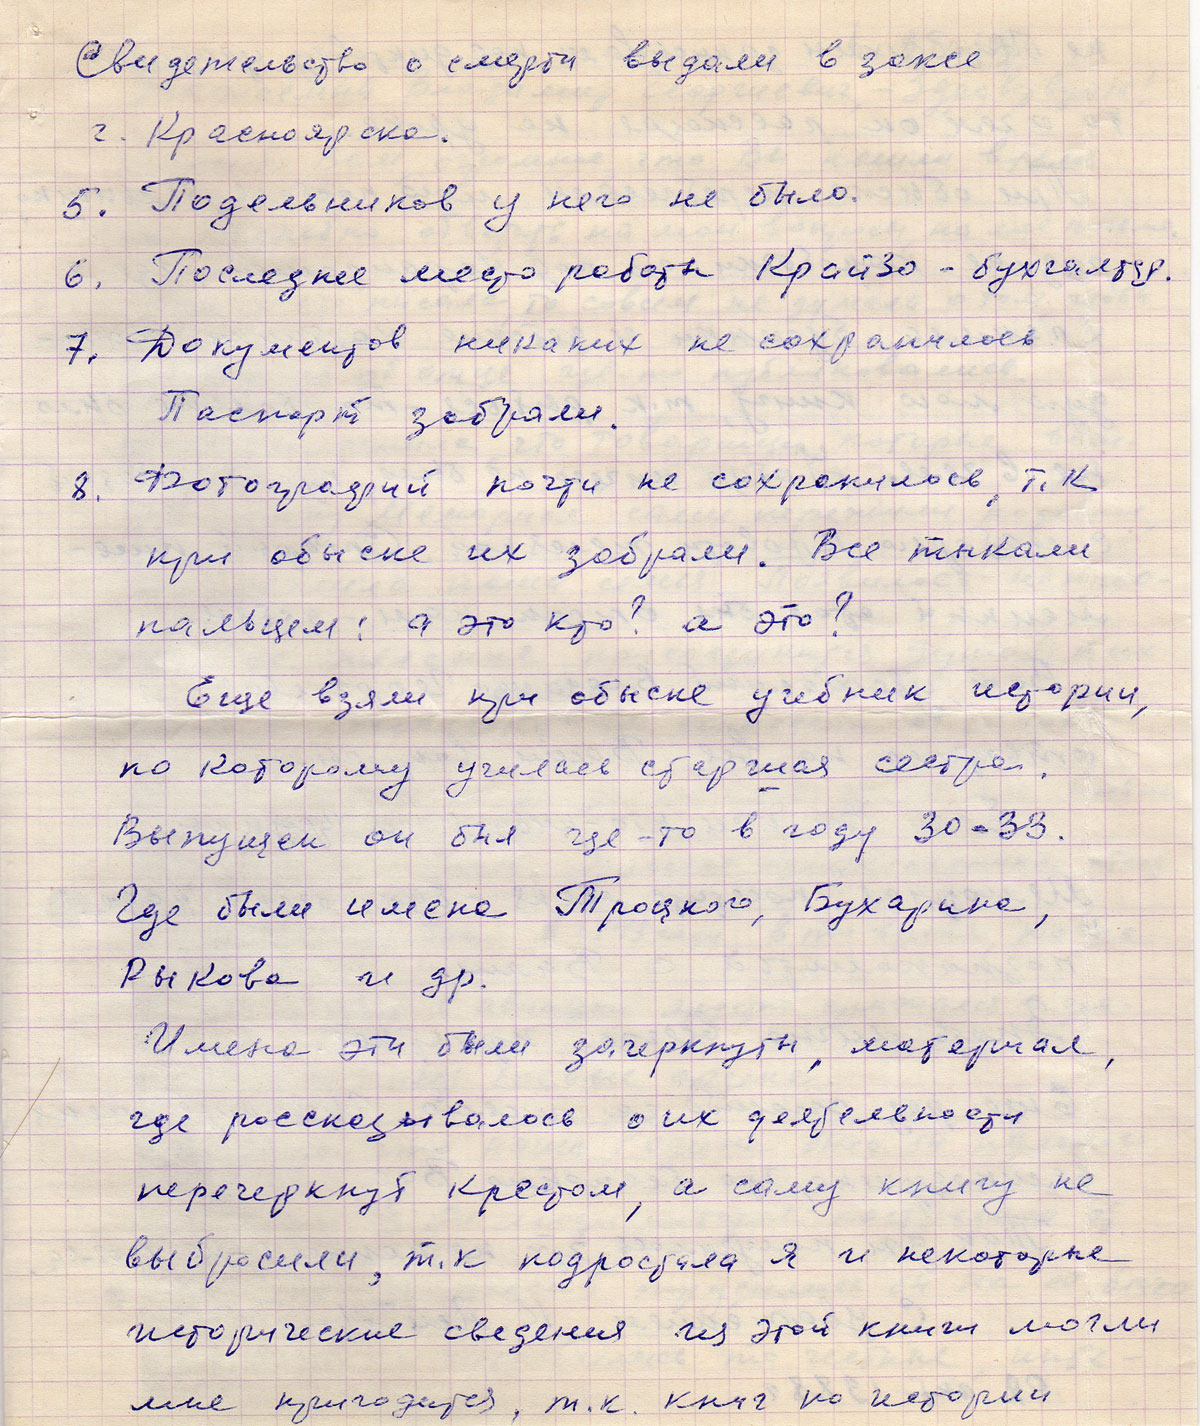 Свидетельство о смерти выдали в заксе
г. Красноярска.
5. Подельников у него не было.
6. Последнее место работы КрайЗО - бухгалтер.
7. Документов никаких не сохранилось
Паспорт забрали.
8. Фотографий почти не сохранилось, т.к
при обыске их забрали. Все тыкали
пальцем: а это кто? а это?
Еще взяли при обыске учебник истории,
по которому училась старшая сестра.
Выпущен он был где-то в году 30-33.
Где были имена Троцкого, Бухарина,
Рыкова и др.
Имена эти были зачеркнуты, материал,
где рассказывалось о их деятельности
перечеркнут крестом, а саму книгу не
выбросили, т.к подростала я и некоторые
исторические сведения из этой книги могли
мне пригодится, т.к. книг по истории